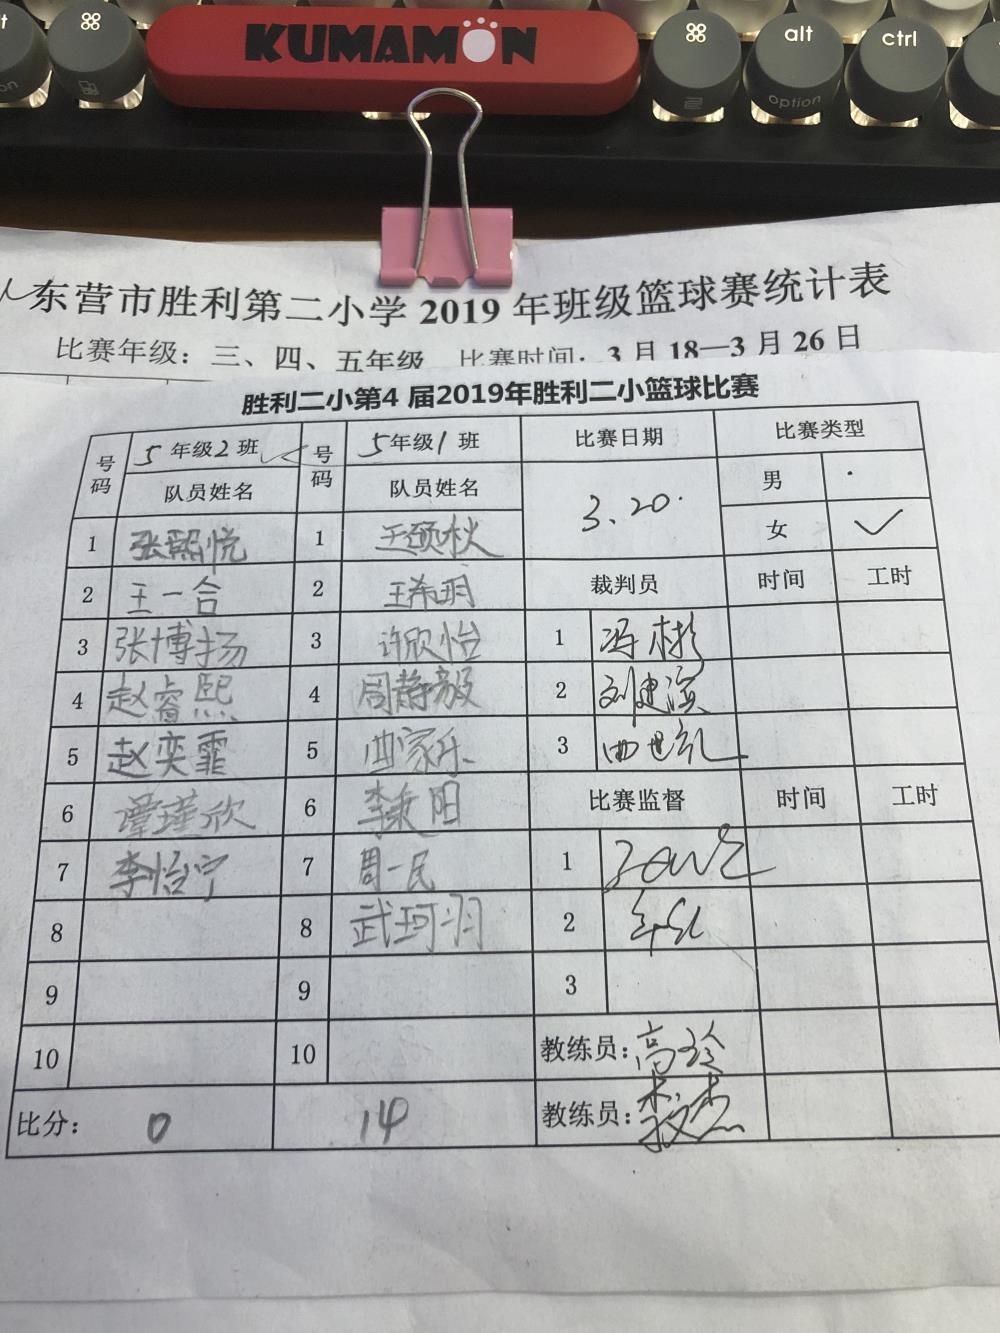 ⌘ KUMAMON ⌘ alt option ctrl
东营市胜利第二小学 2019 年班级篮球赛统计表
比赛年级：三、四、五年级 比赛时间：3 月 18—3 月 26 日
胜利二小第4 届2019年胜利二小篮球比赛
号码 5 年级 2 班 号码 5 年级 1 班 比赛日期 比赛类型
队员姓名 队员姓名 3.20. 男
女 ✓
1 张熙悦 1 王颐秋
2 王一合 2 王希玥 裁判员 时间 工时
3 张博扬 3 许欣怡 1 冯彬
4 赵睿熙 4 周静毅 2 刘建滨
5 赵奕霏 5 曲家乐 3
6 谭瑾欣 6 李奕阳 比赛监督 时间 工时
7 李怡宁 7 周一民 1
8 8 武珂羽 2
9 9 3
10 10 教练员：高玲
比分： 0 14 教练员：